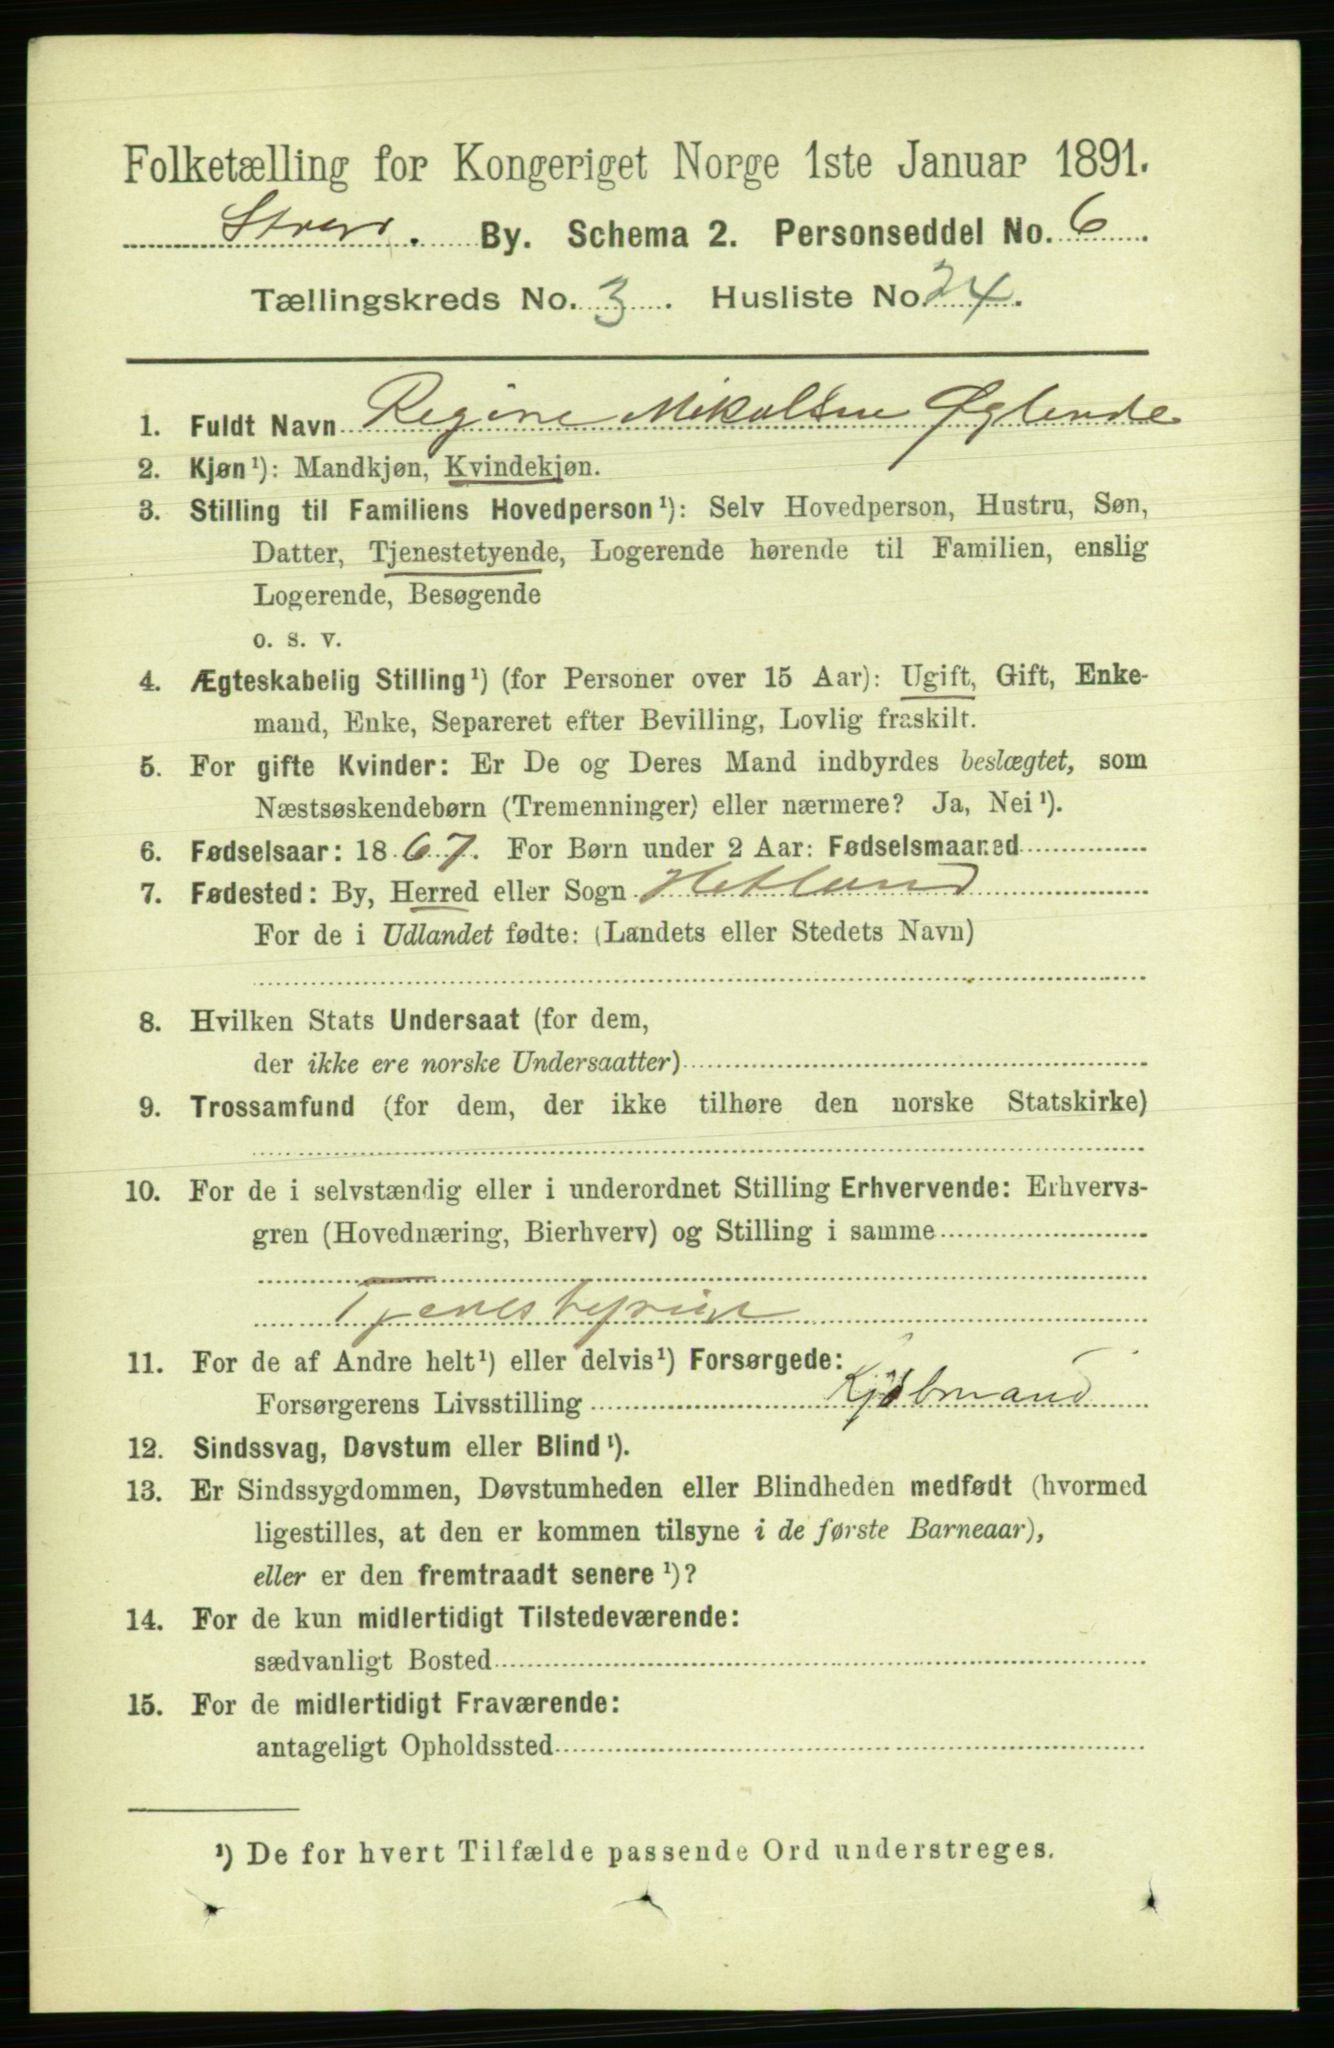 Folketælling for Kongeriget Norge 1ste Januar 1891.
By. Schema 2. Personseddel No. 6
Tællingskreds No. 3. Husliste No. 24.
1. Fuldt Navn Regine Mikalsen Øglende
2. Kjøn¹): Mandkjøn, Kvindekjøn.
3. Stilling til Familiens Hovedperson¹): Selv Hovedperson, Hustru, Søn,
Datter, Tjenestetyende, Logerende hørende til Familien, enslig
Logerende, Besøgende
o. s. v.
4. Ægteskabelig Stilling¹) (for Personer over 15 Aar): Ugift, Gift, Enke-
mand, Enke, Separeret efter Bevilling, Lovlig fraskilt.
5. For gifte Kvinder: Er De og Deres Mand indbyrdes beslægtet, som
Næstsøskendebørn (Tremenninger) eller nærmere? Ja, Nei¹).
6. Fødselsaar: 1867. For Børn under 2 Aar: Fødselsmaaned
7. Fødested: By, Herred eller Sogn Hetland
For de i Udlandet fødte: (Landets eller Stedets Navn)
8. Hvilken Stats Undersaat (for dem,
der ikke ere norske Undersaatter)
9. Trossamfund (for dem, der ikke tilhøre den norske Statskirke)
10. For de i selvstændig eller i underordnet Stilling Erhvervende: Erhvervs-
gren (Hovednæring, Bierhverv) og Stilling i samme
Tjenestepige
11. For de af Andre helt¹) eller delvis¹) Forsørgede:
Forsørgerens Livsstilling Kjøbmand
12. Sindssvag, Døvstum eller Blind¹).
13. Er Sindssygdommen, Døvstumheden eller Blindheden medfødt (hvormed
ligestilles, at den er kommen tilsyne i de første Barneaar),
eller er den fremtraadt senere¹)?
14. For de kun midlertidigt Tilstedeværende:
sædvanligt Bosted
15. For de midlertidigt Fraværende:
antageligt Opholdssted
¹) De for hvert Tilfælde passende Ord understreges.